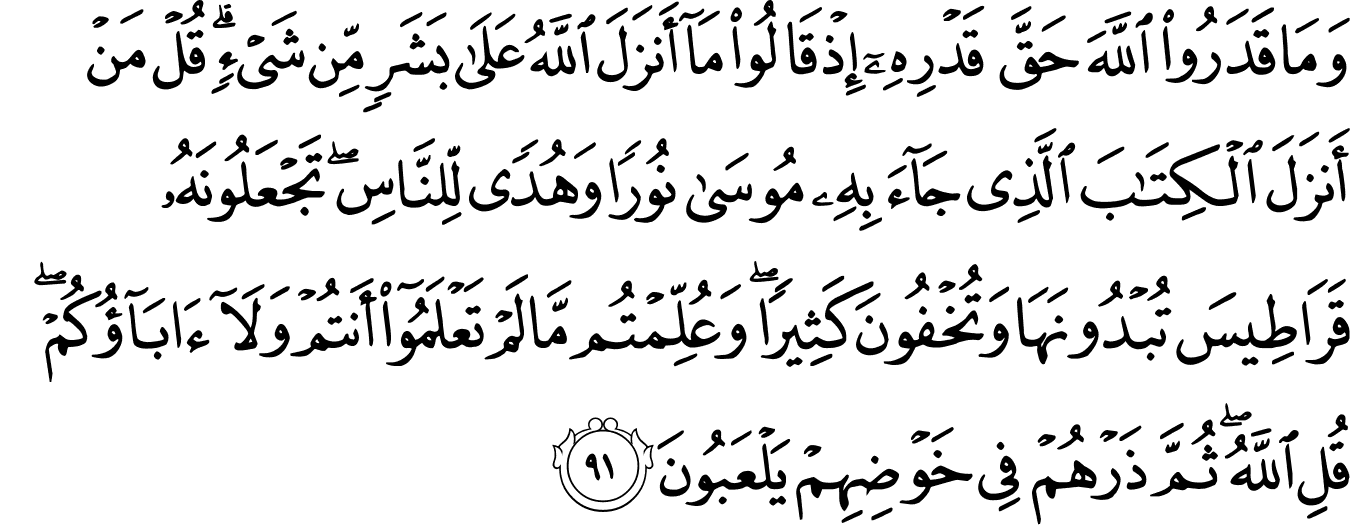 وَمَا قَدَرُوا۟ ٱللَّهَ حَقَّ قَدْرِهِۦٓ إِذْ قَالُوا۟ مَآ أَنزَلَ ٱللَّهُ عَلَىٰ بَشَرٍ مِّن شَىْءٍ ۗ قُلْ مَنْ
أَنزَلَ ٱلْكِتَـٰبَ ٱلَّذِى جَآءَ بِهِۦ مُوسَىٰ نُورًا وَهُدًى لِّلنَّاسِ ۖ تَجْعَلُونَهُۥ
قَرَاطِيسَ تُبْدُونَهَا وَتُخْفُونَ كَثِيرًا ۖ وَعُلِّمْتُم مَّا لَمْ تَعْلَمُوٓا۟ أَنتُمْ وَلَآ ءَابَآؤُكُمْ ۖ
قُلِ ٱللَّهُ ۖ ثُمَّ ذَرْهُمْ فِى خَوْضِهِمْ يَلْعَبُونَ ٩١